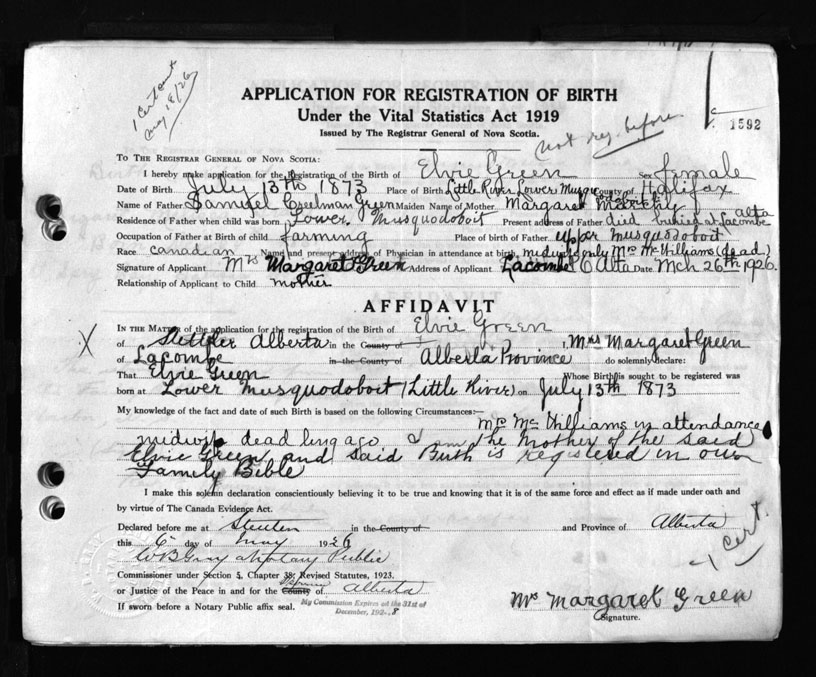 1 Cert sent
Aug 18/26
APPLICATION FOR REGISTRATION OF BIRTH
Under the Vital Statistics Act 1919
Issued by The Registrar General of Nova Scotia.
not reg. before
1592
TO THE REGISTRAR GENERAL OF NOVA SCOTIA:
I hereby make application for the Registration of the Birth of Elvie Green Sex female
Date of Birth July 13th 1873 Place of Birth Little River Lower Musquo County of Halifax
Name of Father Samuel Creelman Green Maiden Name of Mother Margaret
Residence of Father when child was born Lower Musquodoboit Present address of Father died buried at Lacombe Alta
Occupation of Father at Birth of child farming Place of birth of Father upper Musquodoboit
Race canadian Name and present address of Physician in attendance at birth, midwife only Mrs McWilliams (dead)
Signature of Applicant Mrs Margaret Green Address of Applicant Lacombe Alta Date Mch 26th 1926.
Relationship of Applicant to Child mother
AFFIDAVIT
X
IN THE MATTER of the application for the registration of the Birth of Elvie Green
of Stettler Alberta in the County of I, Mrs Margaret Green
of Lacombe in the County of Alberta Province do solemnly declare:
That Elvie Green Whose Birth is sought to be registered was
born at Lower Musquodoboit (Little River) on July 13th 1873
My knowledge of the fact and date of such Birth is based on the following Circumstances:—
Mrs McWilliams in attendance
midwife dead long ago I am the Mother of the said
Elvie Green and said Birth is registered in our
Family Bible
I make this solemn declaration conscientiously believing it to be true and knowing that it is of the same force and effect as if made under oath and
by virtue of The Canada Evidence Act.
Declared before me at in the County of and Province of Alberta
this 6 day of May 1926
a Notary Public
1 cert.
Commissioner under Section 5, Chapter 38, Revised Statutes, 1923.
or Justice of the Peace in and for the County of Province Alberta
If sworn before a Notary Public affix seal.
My Commission Expires on the 31st of
December, 192-8
Mrs Margaret Green
Signature.